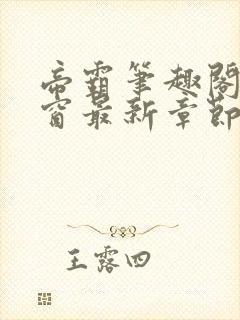 帝霸筆趣閣
窗最新章節
王露四